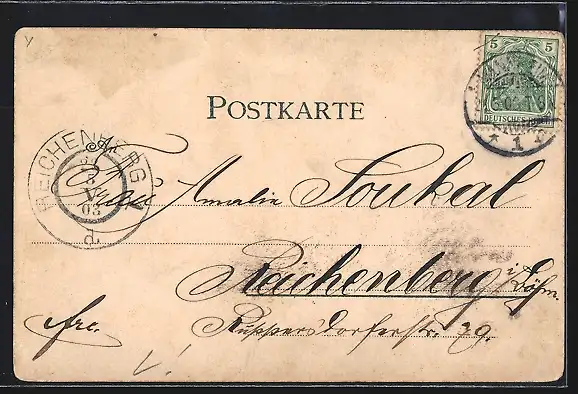 POSTKARTE
5
DEUTSCHES REICH
1
REICHENBERG 1
V
03
d
Frau Amalie Soukal
Reichenberg i/Böhm.
Ruppersdorferstr. 29.
frc.